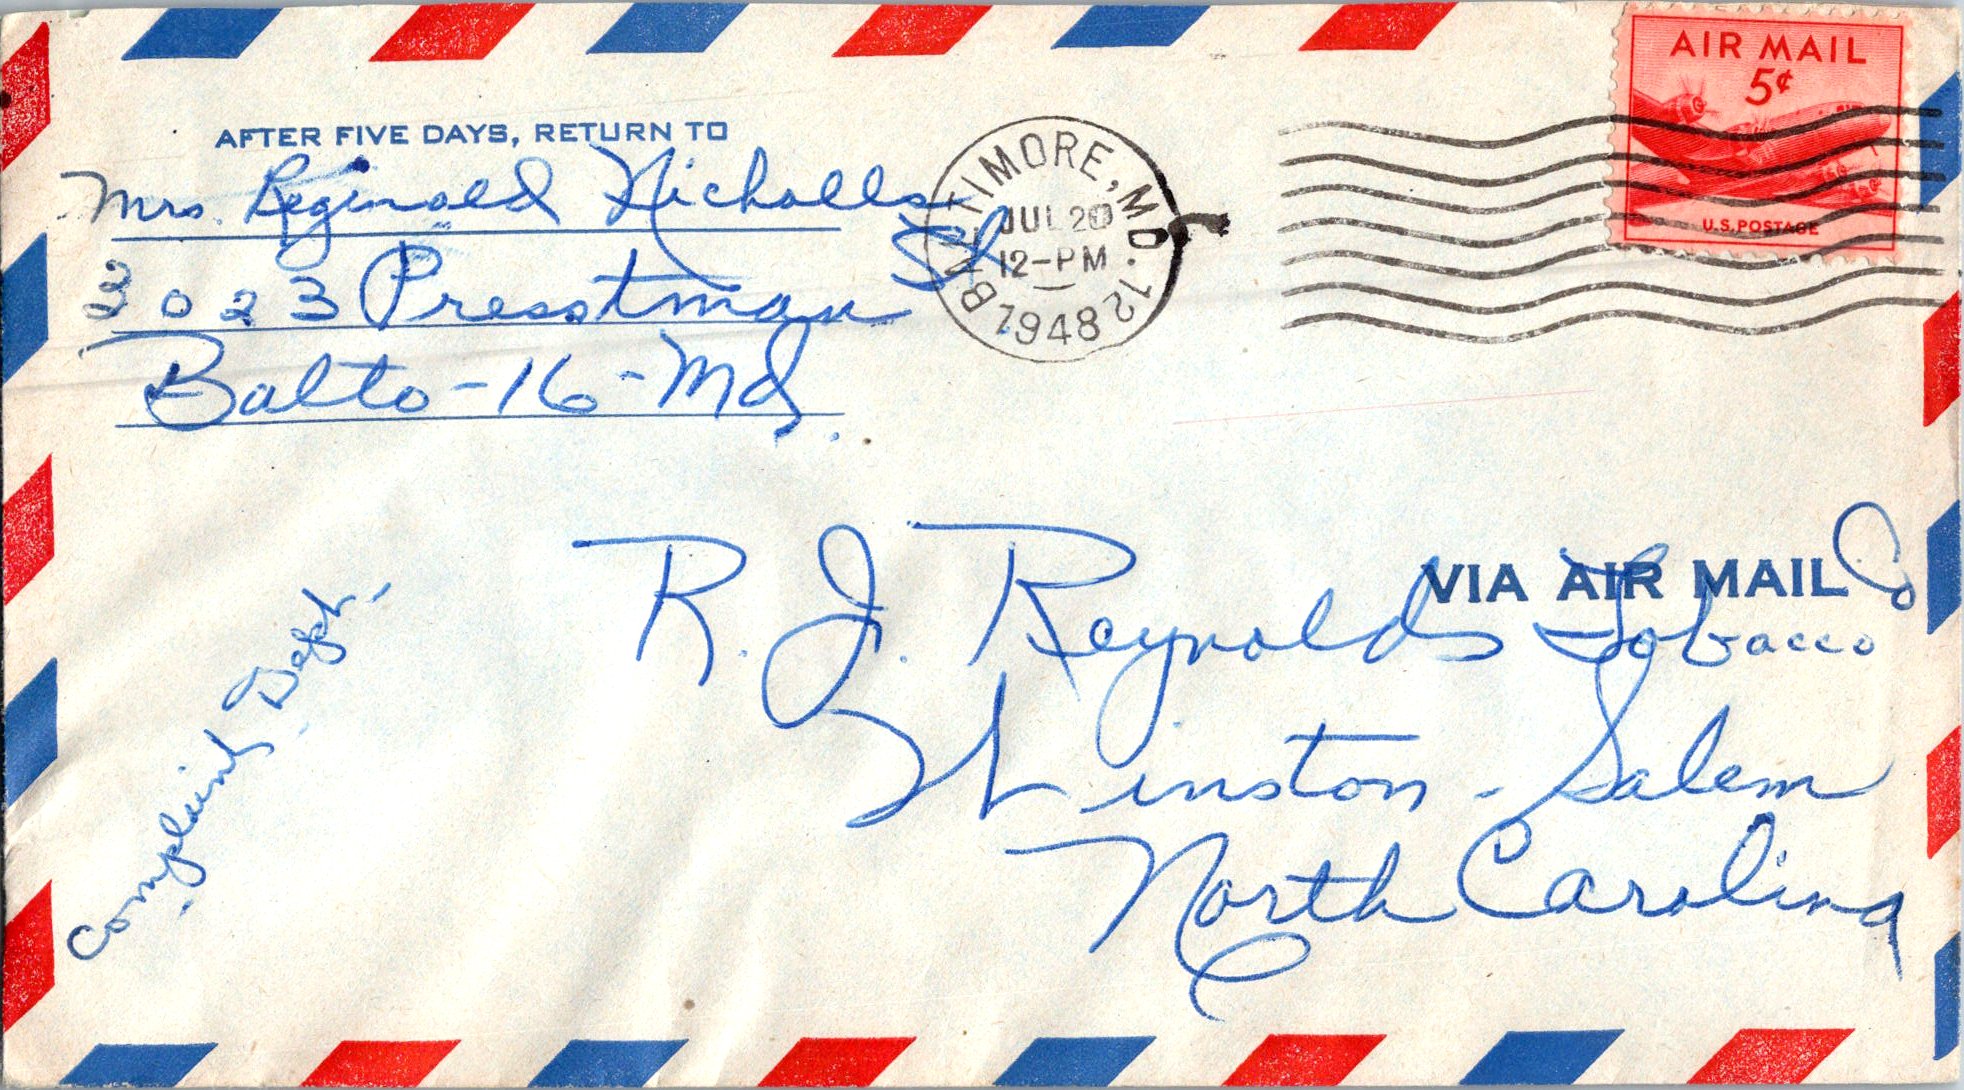 AFTER FIVE DAYS, RETURN TO
Mrs. Reginald Nicholls
3023 Presstman St
Balto-16-Md.
BALTIMORE, MD. 12
JUL 20
12-PM
1948
AIR MAIL
5¢
U.S. POSTAGE
VIA AIR MAIL
R. J. Reynolds Tobacco Co
Winston-Salem
North Carolina
Complaint Dept.